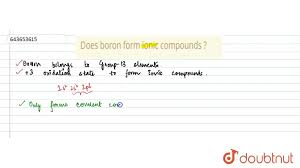 643653615
Does boron form ionic compounds ?
✓ Boron belongs to Group-13 elements.
✓ +3 oxidation state to form Ionic compounds.
1s² 2s² 2p¹
✓ Only forms covalent co
doubtnut